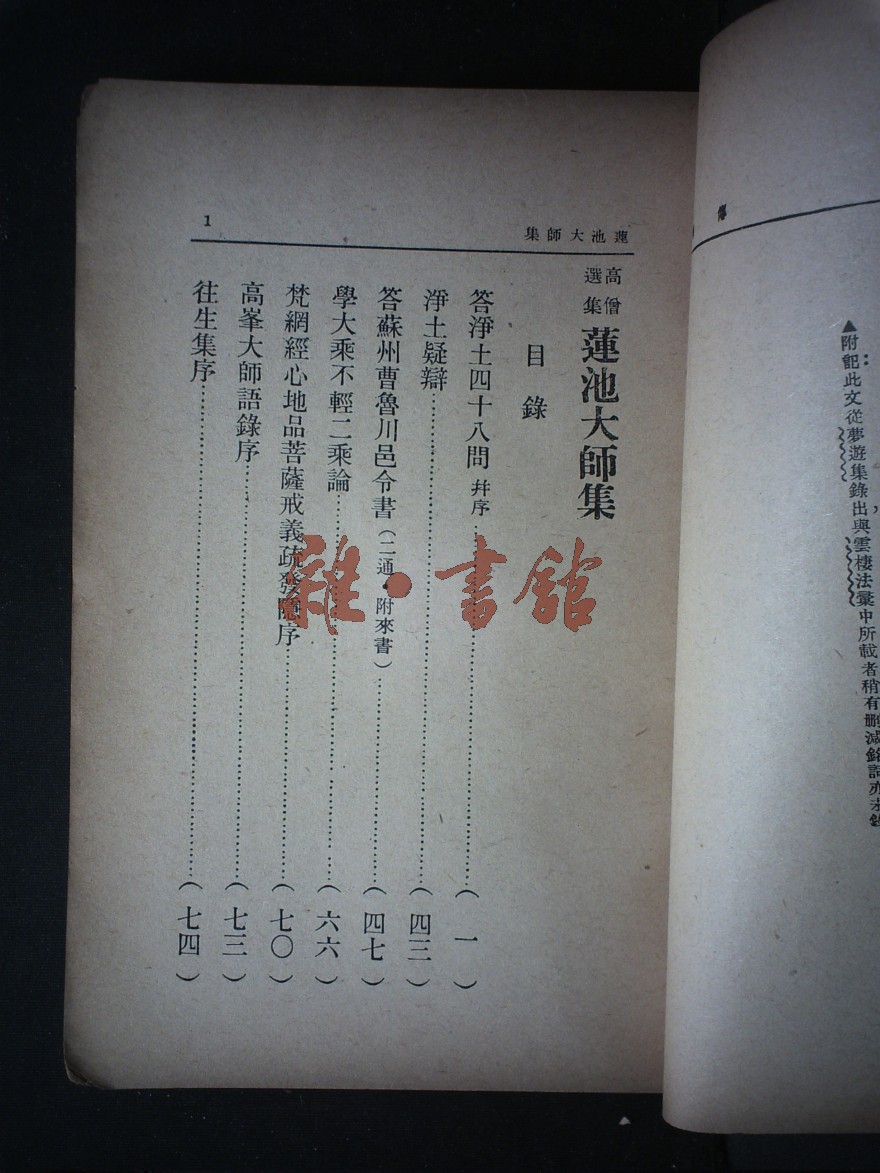 ▲附記此文從夢遊集錄出與雲棲法彙中所載者稍有刪減銘詞亦未錄
蓮池大師集
1
高僧
選集
蓮池大師集
目錄
答淨土四十八問 幷序……(一)
淨土疑辯……(四三)
答蘇州曹魯川邑令書(二通•附來書)……(四七)
學大乘不輕二乘論……(六六)
梵網經心地品菩薩戒義疏發隱序……(七〇)
高峯大師語錄序……(七三)
往生集序……(七四)
雜•書館